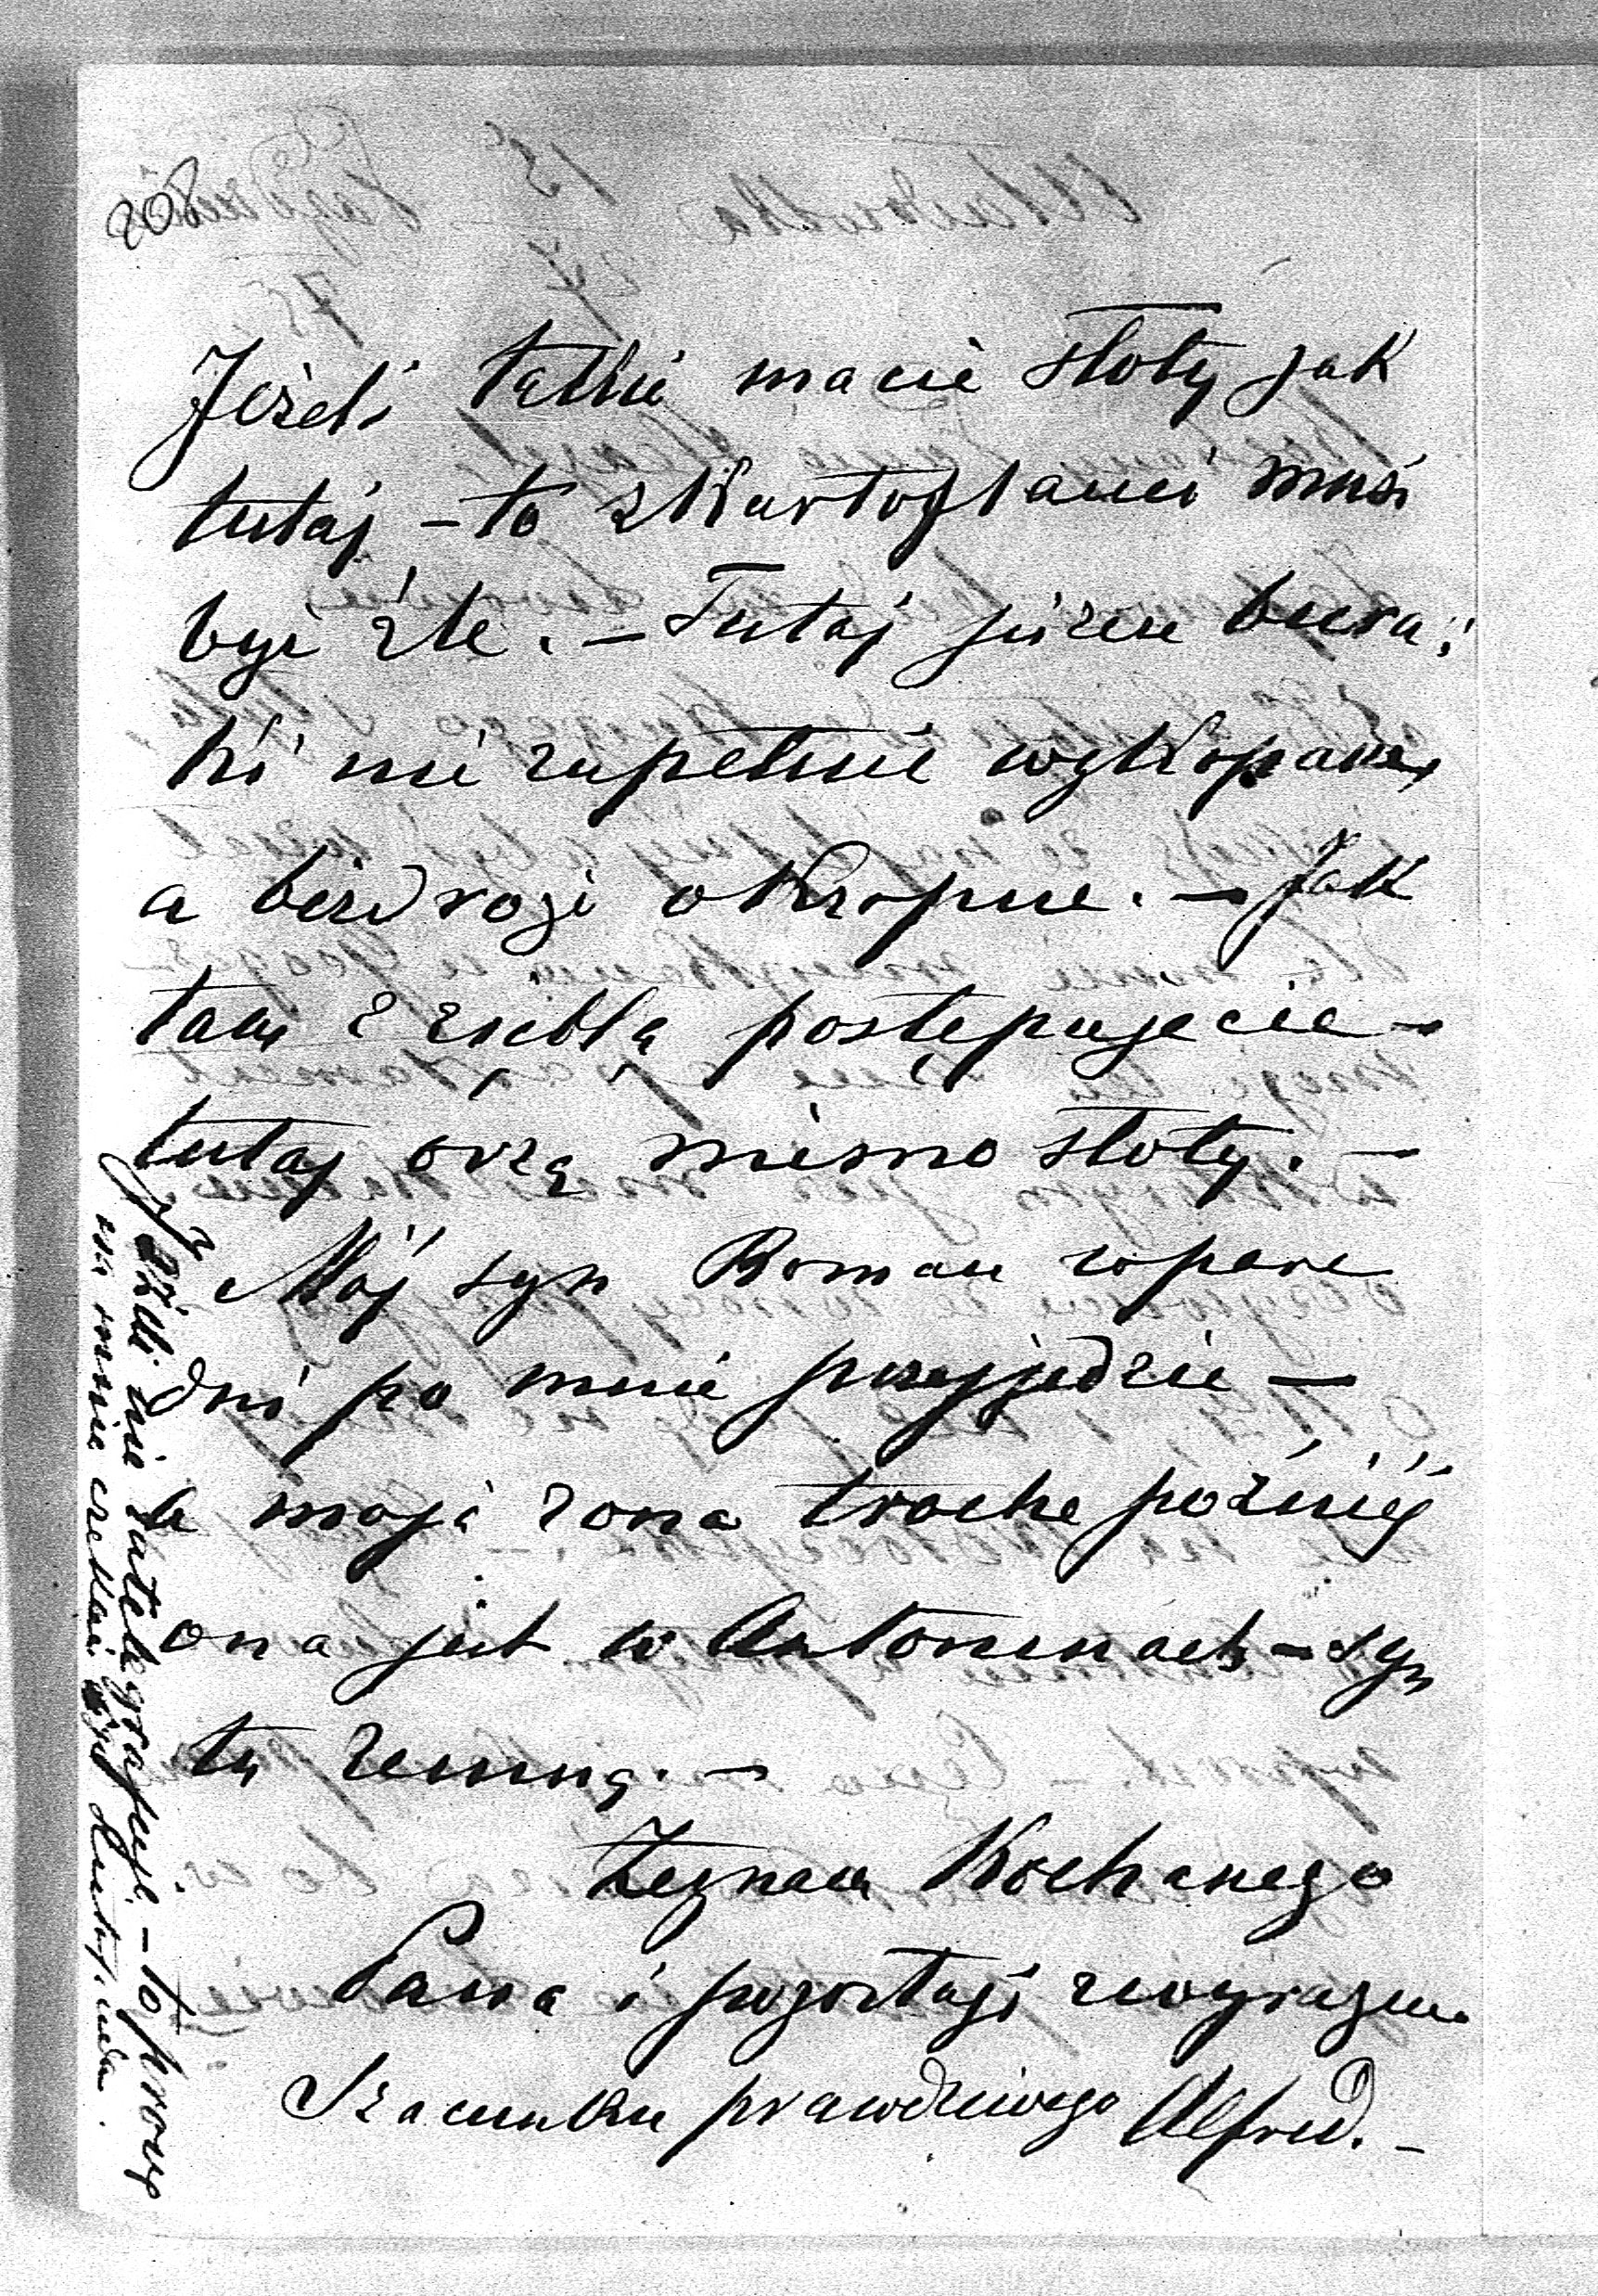 208
Jeżeli takie macie słoty jak
tutaj – to z kartoflami musi
być źle. – Tutaj jeszcze bura:
ki nie zupełnie wykopane,
a bezdrogi okropne. – Jak
tam z zieblą postępujecie –
tutaj orzą mimo słoty. –
Mój syn Roman w parę
dni po mnie przyjedzie –
a moja żona trochę poźniéj
ona jest w Antoninach – syn
tu zemną. –
Żegnam Kochanego
Pana i pozostaję z wyrazem
Szacunku prawdziwego Alfred. –
Jeżeli nie zatelegrafuję – to proszę
na mnie czekać